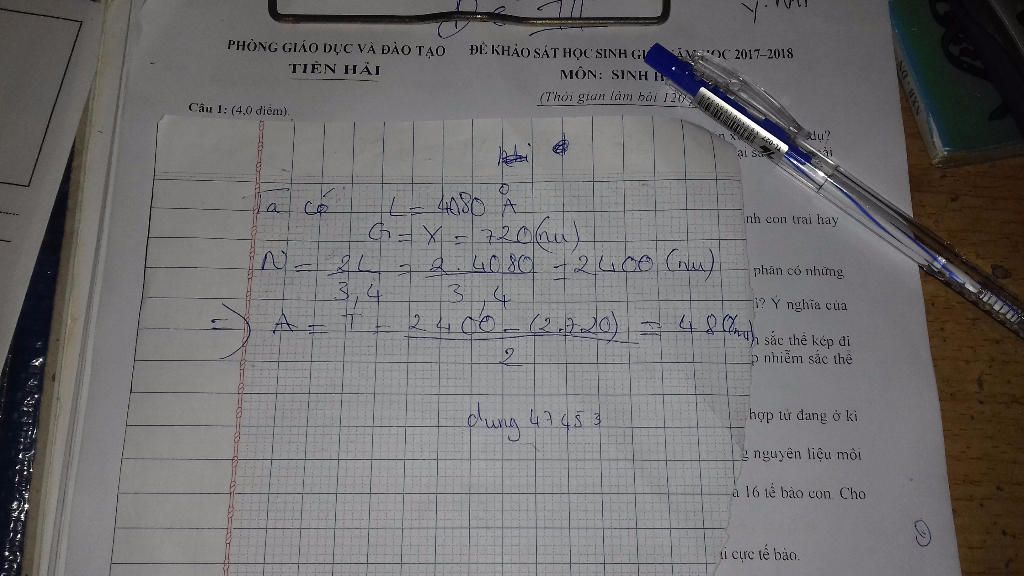 PHÒNG GIÁO DỤC VÀ ĐÀO TẠO
TIỀN HẢI
ĐỀ KHẢO SÁT HỌC SINH NĂM HỌC 2017–2018
MÔN: SINH
(Thời gian làm bài 120
Câu 1: (4,0 điểm).
Ta có L = 4080 Å
G = X = 720 (nu)
N = 2L / 3,4 = 2.4080 / 3,4 = 2400 (nu)
=> A = T = 2400 - (2.720) / 2 = 480 (nu)
dung 47453
dụ?
nh con trai hay
phân có những
ì? Ý nghĩa của
sắc thể kép đi
nhiễm sắc thể
hợp tử đang ở kì
nguyên liệu môi
16 tế bào con. Cho
cực tế bào.